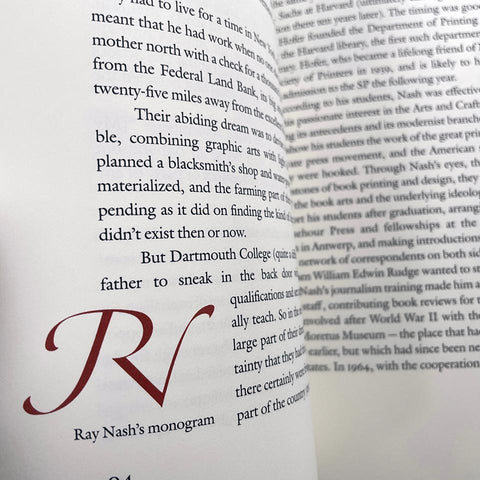 had to live for a time in New
meant that he had work when no one
mother north with a check for a
from the Federal Land Bank, its
twenty-five miles away from the excellen
Their abiding dream was to de
ble, combining graphic arts with
planned a blacksmith's shop and
materialized, and the farming part of
pending as it did on finding the kind of
didn't exist then or now.
But Dartmouth College (quite a
father to sneak in the back door
qualifications and
ally teach. So in the
large part of their
tainty that they had
there certainly were
part of the country
RN
Ray Nash's monogram
Sachs at Harvard (ultimately
ion there ten years later). The timing was good
Hofer founded the Department of Printing
the Harvard library, the first such depart
Hofer, who became a lifelong friend of
ociety of Printers in 1939, and is likely to h
admission to the SP the following year.
ccording to his students, Nash was effective
passionate interest in the Arts and Craft
its antecedents and its modernist branche
show his students the work of the great prin
press movement, and the American
were hooked. Through Nash's eyes, th
stones of book printing and design, they
book arts and the underlying ideolog
et his students after graduation, arrang
ehour Press and fellowships at the
in Antwerp, and making introduction
network of correspondents on both sid
en William Edwin Rudge wanted to st
Nash's journalism training made him a
staff, contributing book reviews for t
nvolved after World War II with the
Moretus Museum—the place that had
earlier, but which had since been ne
States. In 1964, with the cooperation